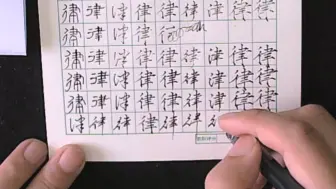 律律律律律律律律
律律律律律
律律律律律律律律
律律律律律律律律
律律律律律律律律
律律律律律律